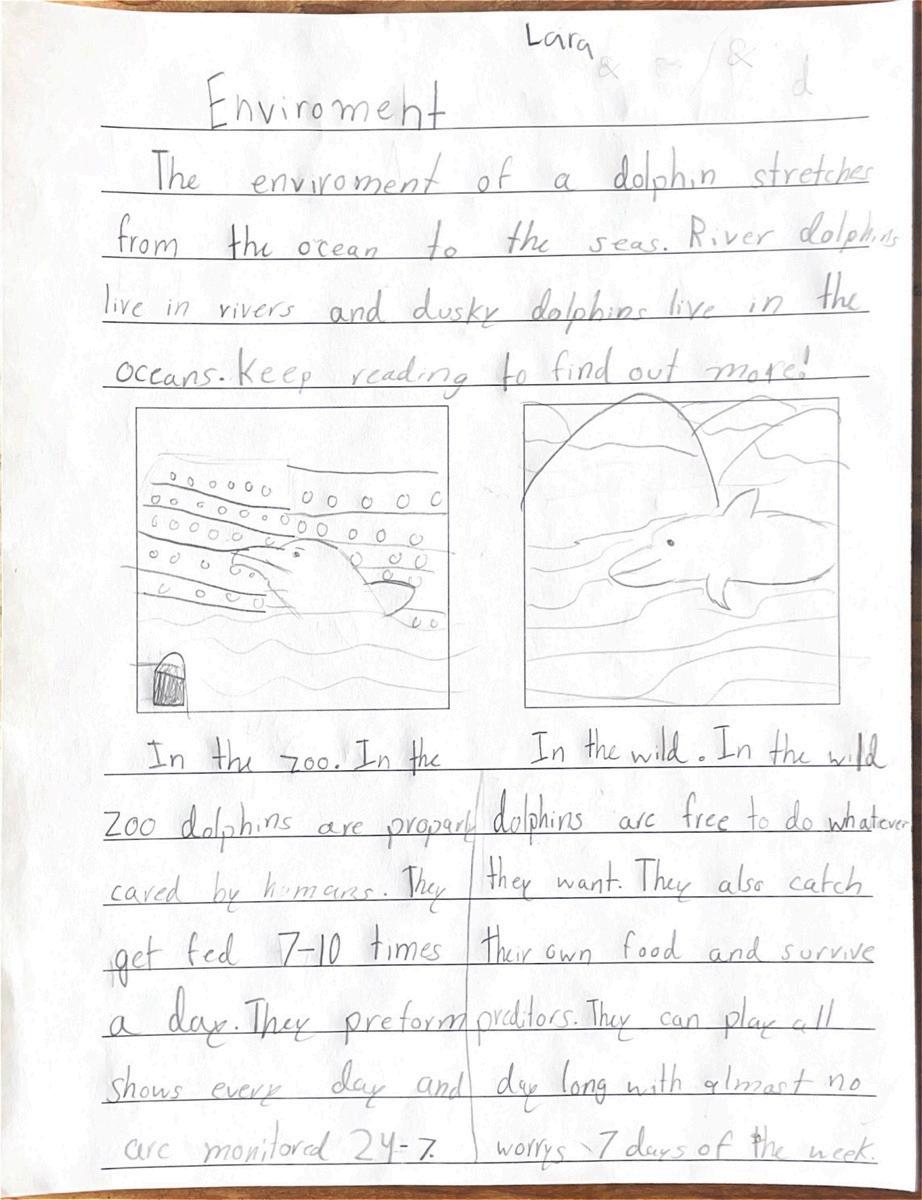 Lara
Enviroment
The enviroment of a dolphin stretches
from the ocean to the seas. River dolphins
live in rivers and dusky dolphins live in the
oceans. Keep reading to find out more!
In the zoo. In the
zoo dolphins are proparly
cared by humans. They
get fed 7-10 times
a day. They preform
shows every day and
are monitored 24-7.
In the wild. In the wild
dolphins are free to do whatever
they want. They also catch
their own food and survive
preditors. They can play all
day long with almost no
worrys 7 days of the week.